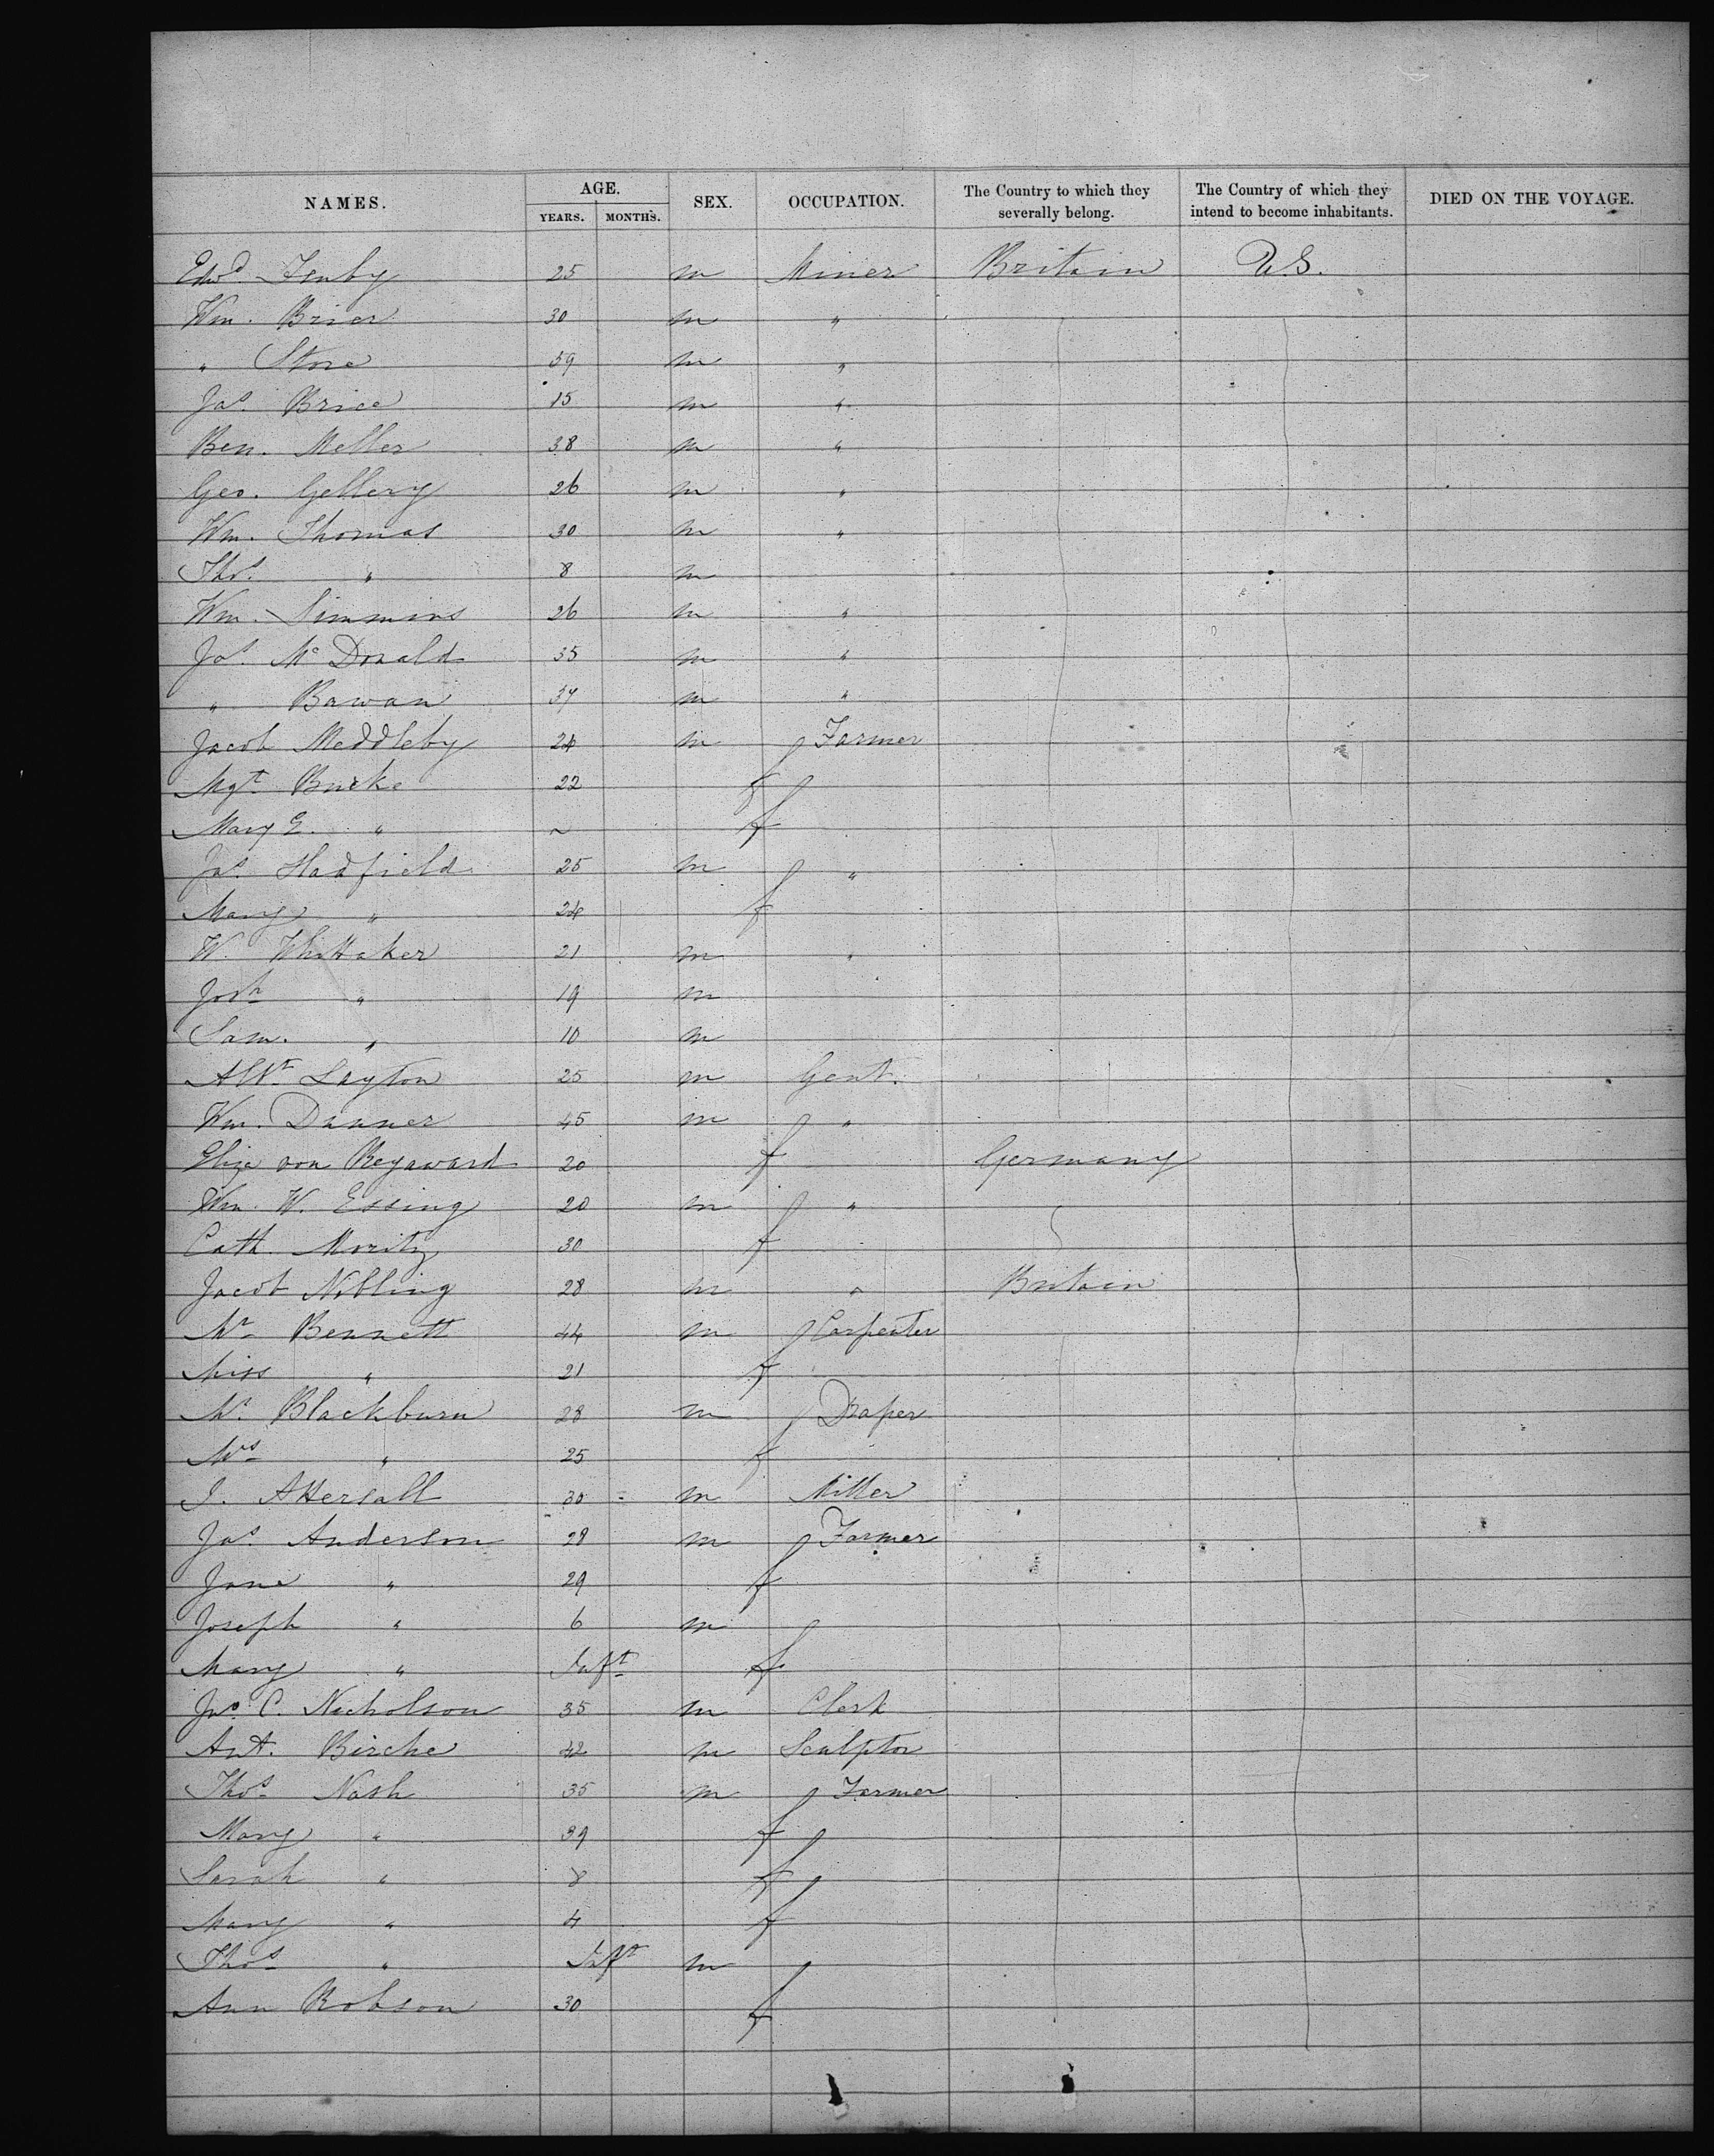 NAMES. AGE. SEX. OCCUPATION. The Country to which they severally belong. The Country of which they intend to become inhabitants. DIED ON THE VOYAGE.
YEARS. MONTHS.
Edwd. Fenby 25 m Miner Britain U.S.
Wm. Brier 30 m "
" Stone 39 m "
Jas. Brice 15 m "
Ben. Meller 38 m "
Geo. Gellery 26 m "
Wm. Thomas 30 m "
Thos. " 8 m
Wm. Simmins 26 m "
Jas. McDonald 35 m "
" Bawan 37 m "
Jacob Meddleby 24 m Farmer
Mgt. Burke 22 f
Mary E. " ~ f
Jas. Hadfield 25 m "
Mary " 24 f
W. Whittaker 21 m "
Josh " 19 m
Sam. " 10 m
Albt. Layton 25 m Gent.
Wm. Danner 45 m "
Eliza von Regaward 20 f Germany
Wm. W. Essing 20 m "
Cath. Moritz 30 f
Jacob Nibling 28 m " Britain
Mr. Bennett 44 m Carpenter
Miss " 21 f
Mr. Blackburn 28 m Draper
Mrs. " 25 f
J. Attersall 30 m Miller
Jas. Anderson 28 m Farmer
Jane " 29 f
Joseph " 6 m
Mary " Inft. f
Jno. C. Nicholson 35 m Clerk
Ant. Birche 42 m Sculptor
Thos. Nash 35 m Farmer
Mary " 39 f
Sarah " 8 f
Mary " 4 f
Thos. " Inft. m
Ann Robson 30 f